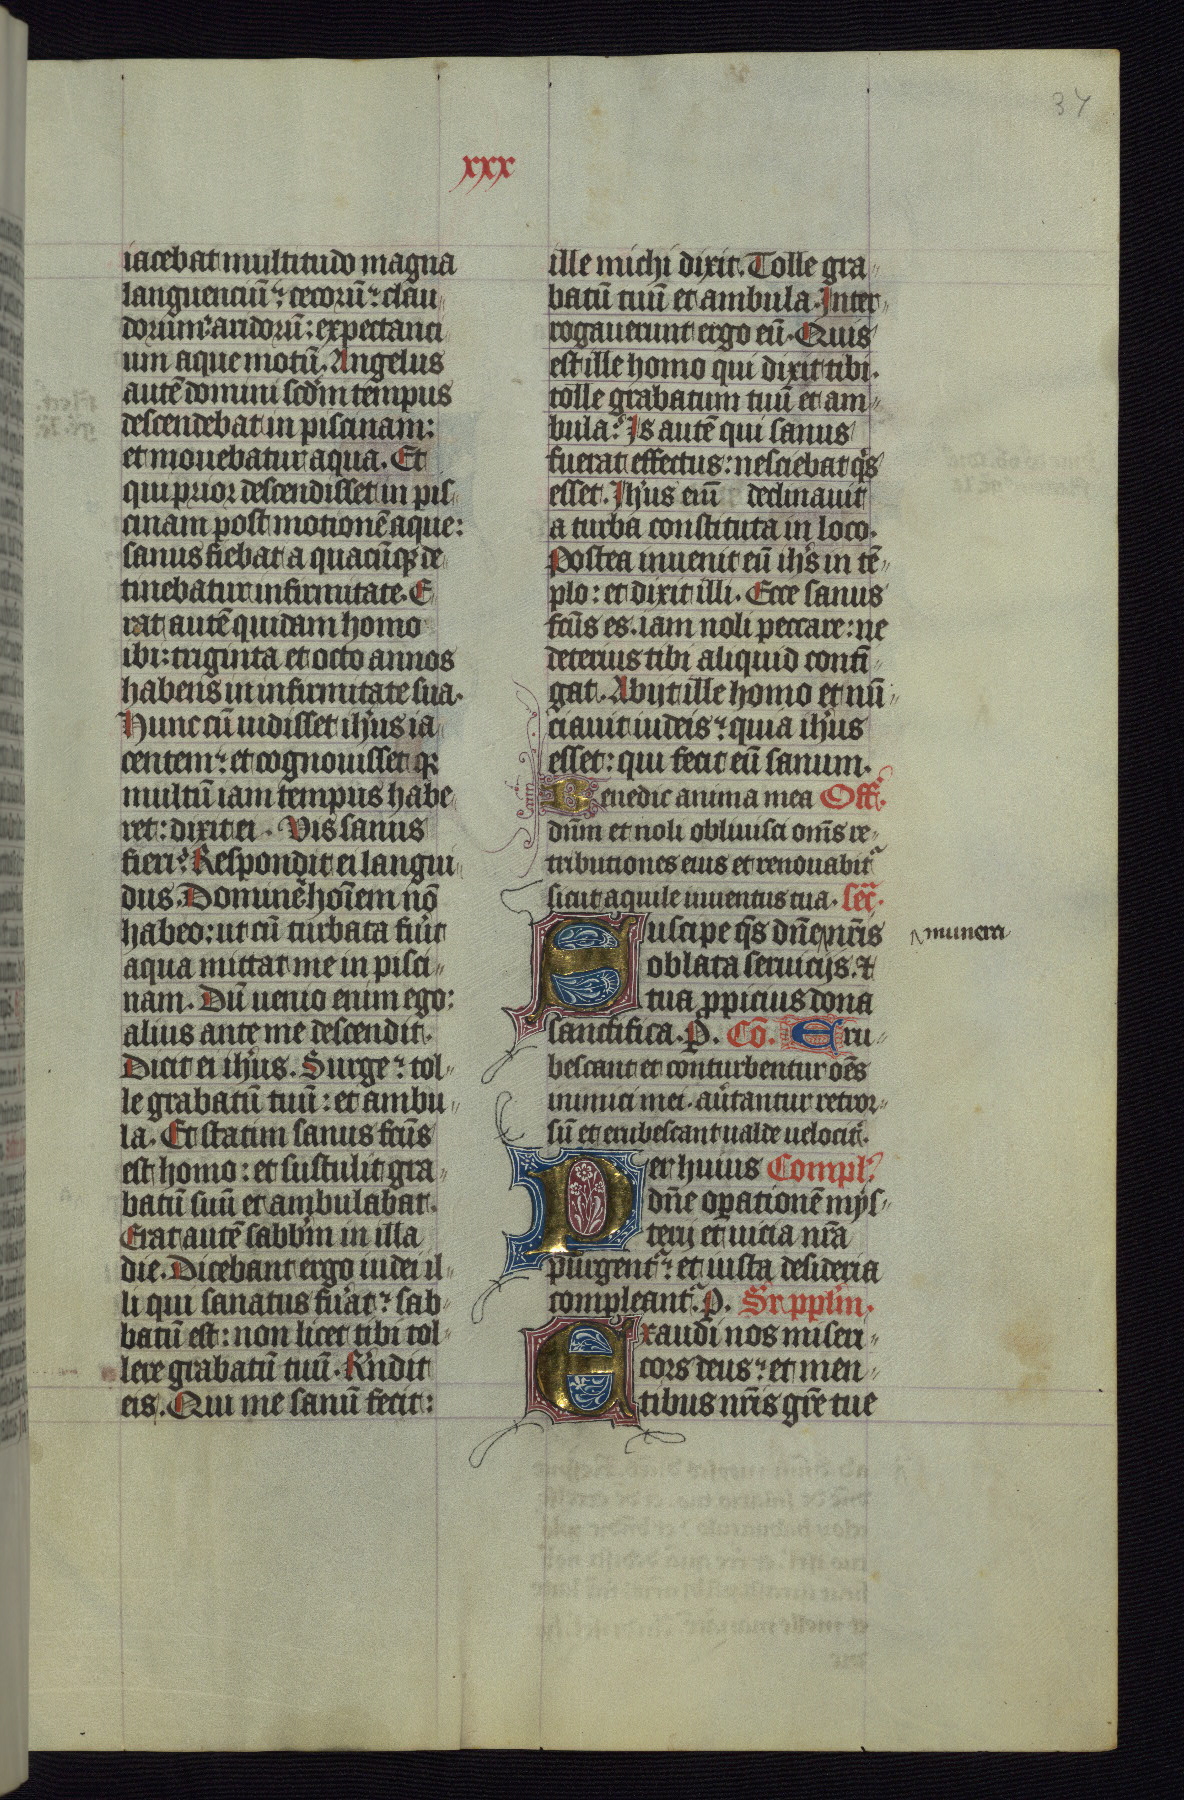 37
xxx
iacebat multitudo magna
languenciũ: cecorũ: clau
dorum: aridorũ: expectanti
um aque motũ. Angelus
autẽ domini scd̃m tempus
descendebat in piscinam:
et mouebatur aqua. Et
qui prior descendisset in pis
cinam post motionẽ aque:
sanus fiebat a quacũqꝫ de
tinebatur infirmitate. E
rat autẽ quidam homo
ibi: triginta et octo annos
habens in infirmitate sua.
Hunc cũ uidisset ih̃us ia
centem: et cognouisset qꝛ
multũ iam tempus habe
ret: dixit ei. Vis sanus
fieri? Respondit ei langui
dus. Domine hoĩem nõ
habeo: ut cũ turbata fũit
aqua mittat me in pisci
nam. Dũ uenio enim ego:
alius ante me descendit.
Dicit ei ih̃us. Surge: tol
le grabatũ tuũ: et ambu
la. Et statim sanus fc̃us
est homo: et sustulit gra
batũ suũ et ambulabat.
Erat autẽ sabb̃m in illa
die. Dicebant ergo iudei il
li qui sanatus fũat: sab
batũ est: non licet tibi tol
lere grabatũ tuũ. R̃ndit
eis. Qui me sanũ fecit:
ille michi dixit. Tolle gra
batũ tuũ et ambula. Inter
rogauerunt ergo eũ. Quis
est ille homo qui dixit tibi.
tolle grabatum tuũ et am
bula? Is autẽ qui sanus
fuerat effectus: nesciebat q̃s
esset. Ih̃us eni᷒ declinauit
a turba constituta in loco.
Postea inuenit eũ ih̃s in tẽ
plo: et dixit illi. Ecce sanus
fc̃us es. iam noli peccare: ne
deterius tibi aliquid contĩ
gat. Abijt ille homo et nũ
ciauit iudeis: quia ih̃us
esset: qui fecit eũ sanum.
Benedic anima mea Off̃.
dñm et noli obliuisci om̃s re
tributiones eius et renouabit᷑
sicut aquile iuuentus tua. Sec̃.
Suscipe q̃s dñe nr̃is
munera
oblata seruicijs. ⁊
tua ꝓpicius dona
sanctifica. P. Cõ. Eru
bescant et conturbentur oẽs
inimici mei. aũtantur retror
sũ et erubescant ualde uelocit᷑.
Per huius Compl̃.
dñe oꝑationẽ mys
terij et uicia nr̃a
purgent᷑: et iusta desideria
compleant᷑. P. Sr̃ ppl̃m.
Exaudi nos miseri
cors deus: et men
tibus nr̃is gr̃e tue